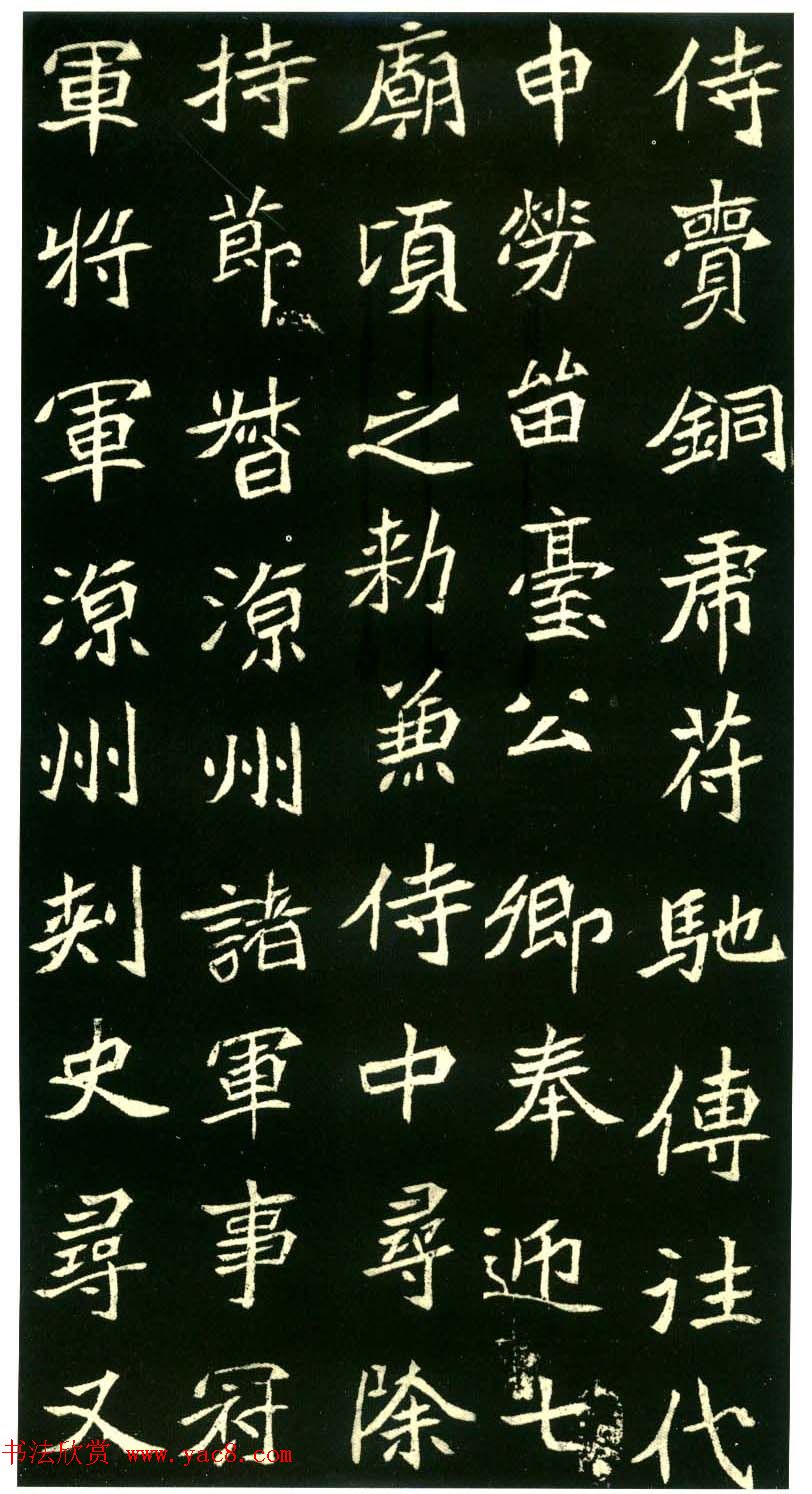 侍賷銅虎符馳傳往代
申勞留臺公卿奉迎七
廟頃之勑兼侍中尋除
持節督涼州諸軍事冠
軍将軍涼州刺史尋又
书法欣赏 www.yac8.com